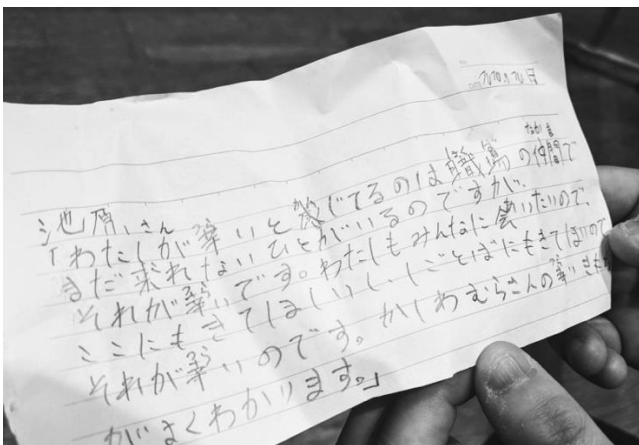 池原さん
なかま
「わたしが辛いと感じてるのは職場の仲間で
まだ来れないひとがいるのですが、
それが辛いです。わたしもみんなに会いたいので、
ここにもきてほしいし、しごとばにもきてほしいので
それが辛いのです。かしわむらさんの辛いきも
がよくわかります。」